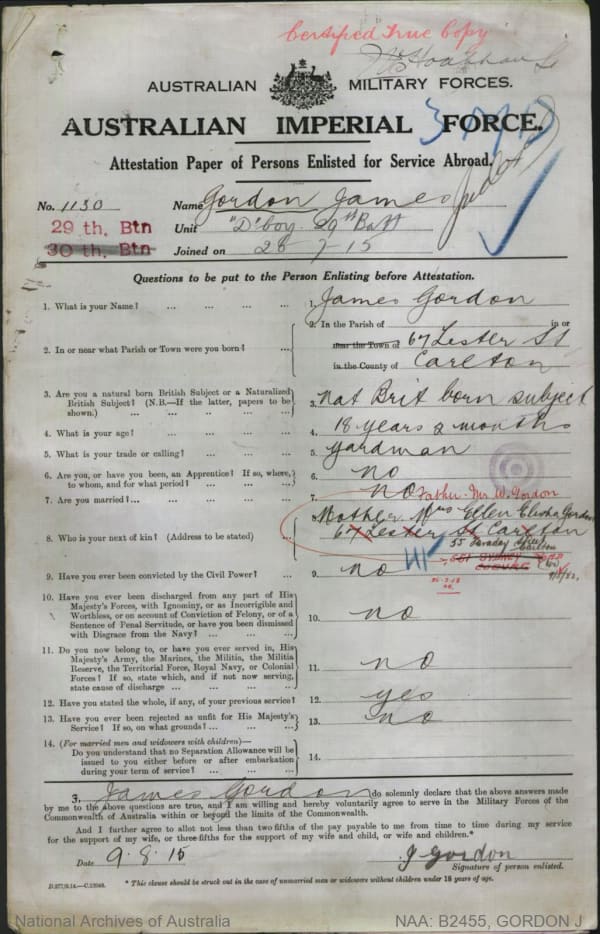 Certified True Copy
AUSTRALIAN MILITARY FORCES.
AUSTRALIAN IMPERIAL FORCE.
Attestation Paper of Persons Enlisted for Service Abroad.
No. 1130 Name Gordon James
29 th. Btn Unit "D" Coy. 29th Batt
30 th. Btn Joined on 28-7-15
Questions to be put to the Person Enlisting before Attestation.
1. What is your Name? ... ... ... ... 1. James Gordon
2. In or near what Parish or Town were you born? ... 2. In the Parish of in or
near the Town of 67 Lester St
in the County of Carlton
3. Are you a natural born British Subject or a Naturalized British Subject? (N.B.—If the latter, papers to be shown.) ... ... .. ... 3. nat Brit born subject
4. What is your age? ... ... ... ... 4. 18 years 2 months
5. What is your trade or calling? ... ... ... 5. yardman
6. Are you, or have you been, an Apprentice? If so, where, to whom, and for what period? ... ... ... 6. no
7. Are you married?... ... ... ... ... 7. no
Father. Mr W. Gordon
8. Who is your next of kin? (Address to be stated) ... 8. Mother Mrs Ellen Elisha Gordon
67 Lester St Carlton
55 Faraday Street
Carlton
9. Have you ever been convicted by the Civil Power? ... 9. no
10. Have you ever been discharged from any part of His Majesty's Forces, with Ignominy, or as Incorrigible and Worthless, or on account of Conviction of Felony, or of a Sentence of Penal Servitude, or have you been dismissed with Disgrace from the Navy? ... ... ... 10. no
11. Do you now belong to, or have you ever served in, His Majesty's Army, the Marines, the Militia, the Militia Reserve, the Territorial Force, Royal Navy, or Colonial Forces? If so, state which, and if not now serving, state cause of discharge ... ... ... ... 11. no
12. Have you stated the whole, if any, of your previous service? 12. yes
13. Have you ever been rejected as unfit for His Majesty's Service? If so, on what grounds? ... ... ... 13. no
14. (For married men and widowers with children)—
Do you understand that no Separation Allowance will be issued to you either before or after embarkation during your term of service? ... ... ... 14.
I, James Gordon do solemnly declare that the above answers made
by me to the above questions are true, and I am willing and hereby voluntarily agree to serve in the Military Forces of the
Commonwealth of Australia within or beyond the limits of the Commonwealth.
And I further agree to allot not less than two fifths of the pay payable to me from time to time during my service
for the support of my wife, or three-fifths for the support of my wife and child, or wife and children.*
Date 9.8.15 J Gordon
Signature of person enlisted.
* This clause should be struck out in the case of unmarried men or widowers without children under 18 years of age.
National Archives of Australia NAA: B2455, GORDON J